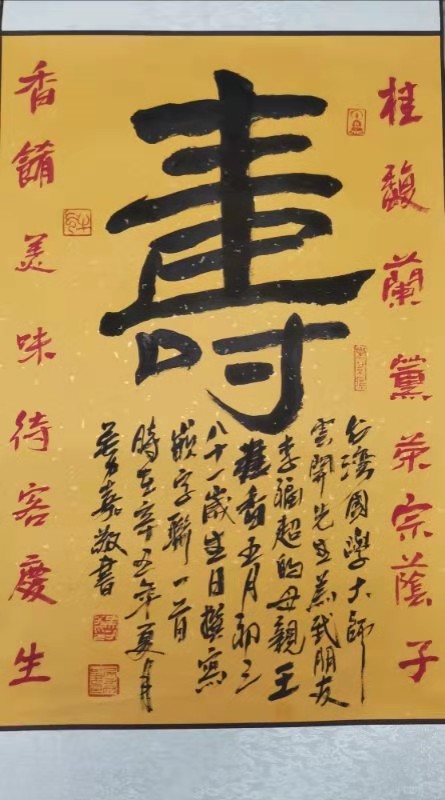 桂馥蘭黨荣宗蔭子
壽
台灣國學大師
雲開先生為我朋友
李超的母親王
桂香五月初三
八十一歲生日撰寫
嵌字聯一首
時在辛丑年夏月
嘉敬書
香餚美味待客慶生